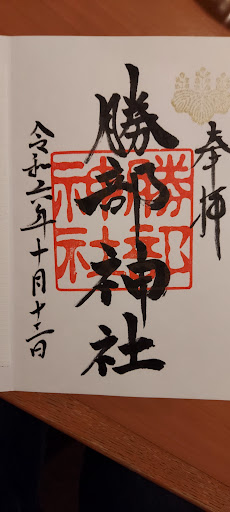 奉拝
勝部神社
勝部
神社
令和六年十月十二日